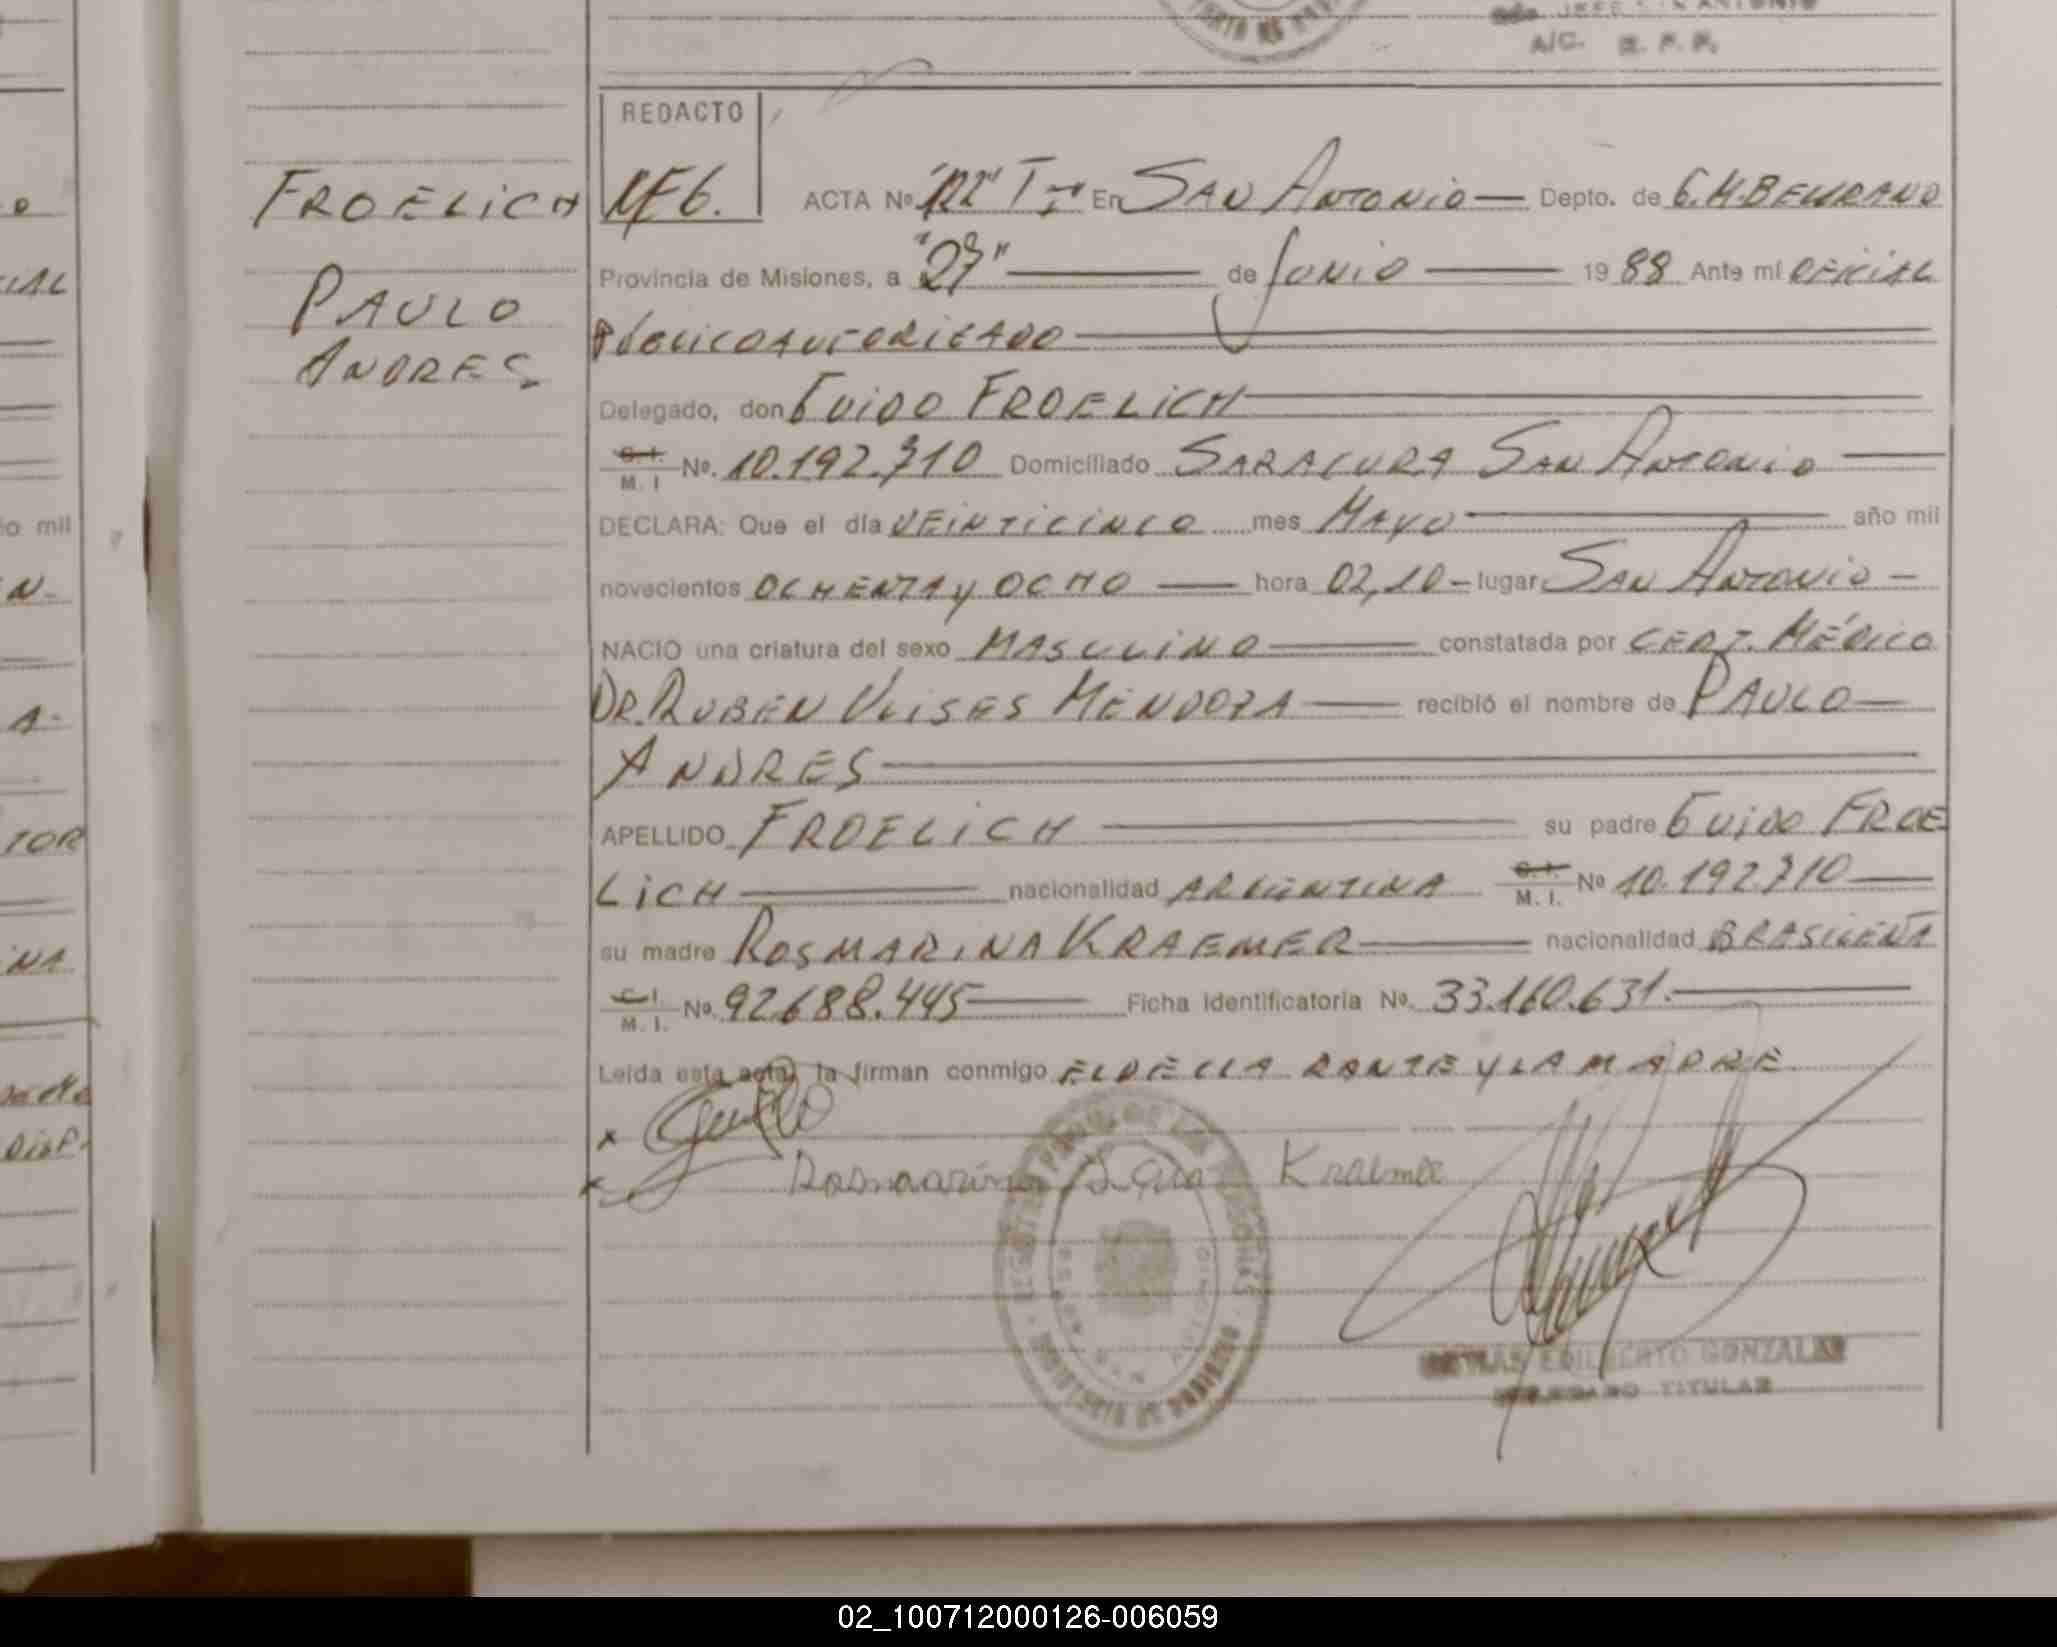 JEFE SAN ANTONIO
A/C. R. P. P.
REDACTO
FROELICH
ACTA Nº "122" T I En SAN ANTONIO — Depto. de G.M.BELGRANO
Provincia de Misiones, a "27" — de JUNIO — 1988 Ante mi OFICIAL
PAULO
PÚBLICO AUTORIZADO
ANDRES
Delegado, don GUIDO FROELICH
C. I. M. I Nº. 10.192.710 Domiciliado SARACURA SAN ANTONIO —
DECLARA: Que el día VEINTICINCO mes MAYO — año mil
novecientos OCHENTA y OCHO — hora 02,10 – lugar SAN ANTONIO –
NACIO una criatura del sexo MASCULINO — constatada por CERT. MÉDICO
DR. RUBEN ULISES MENDOZA — recibió el nombre de PAULO —
ANDRES
APELLIDO FROELICH — su padre GUIDO FROE
LICH — nacionalidad ARGENTINA C. I. M. I. Nº 10.192.710 —
su madre ROSMARINA KRAEMER — nacionalidad BRASILEÑA
C. I. M. I. Nº. 92.688.445 — Ficha identificatoria Nº. 33.160.631. —
Leída esta acta, la firman conmigo EL DECLARANTE y LA MADRE
x
x Kraemer
REGISTRO PROV. DE LAS PERSONAS
SAN ANTONIO
MINISTERIO DE GOBIERNO
EDILBERTO GONZALEZ
DELEGADO TITULAR
io mil
02_100712000126-006059